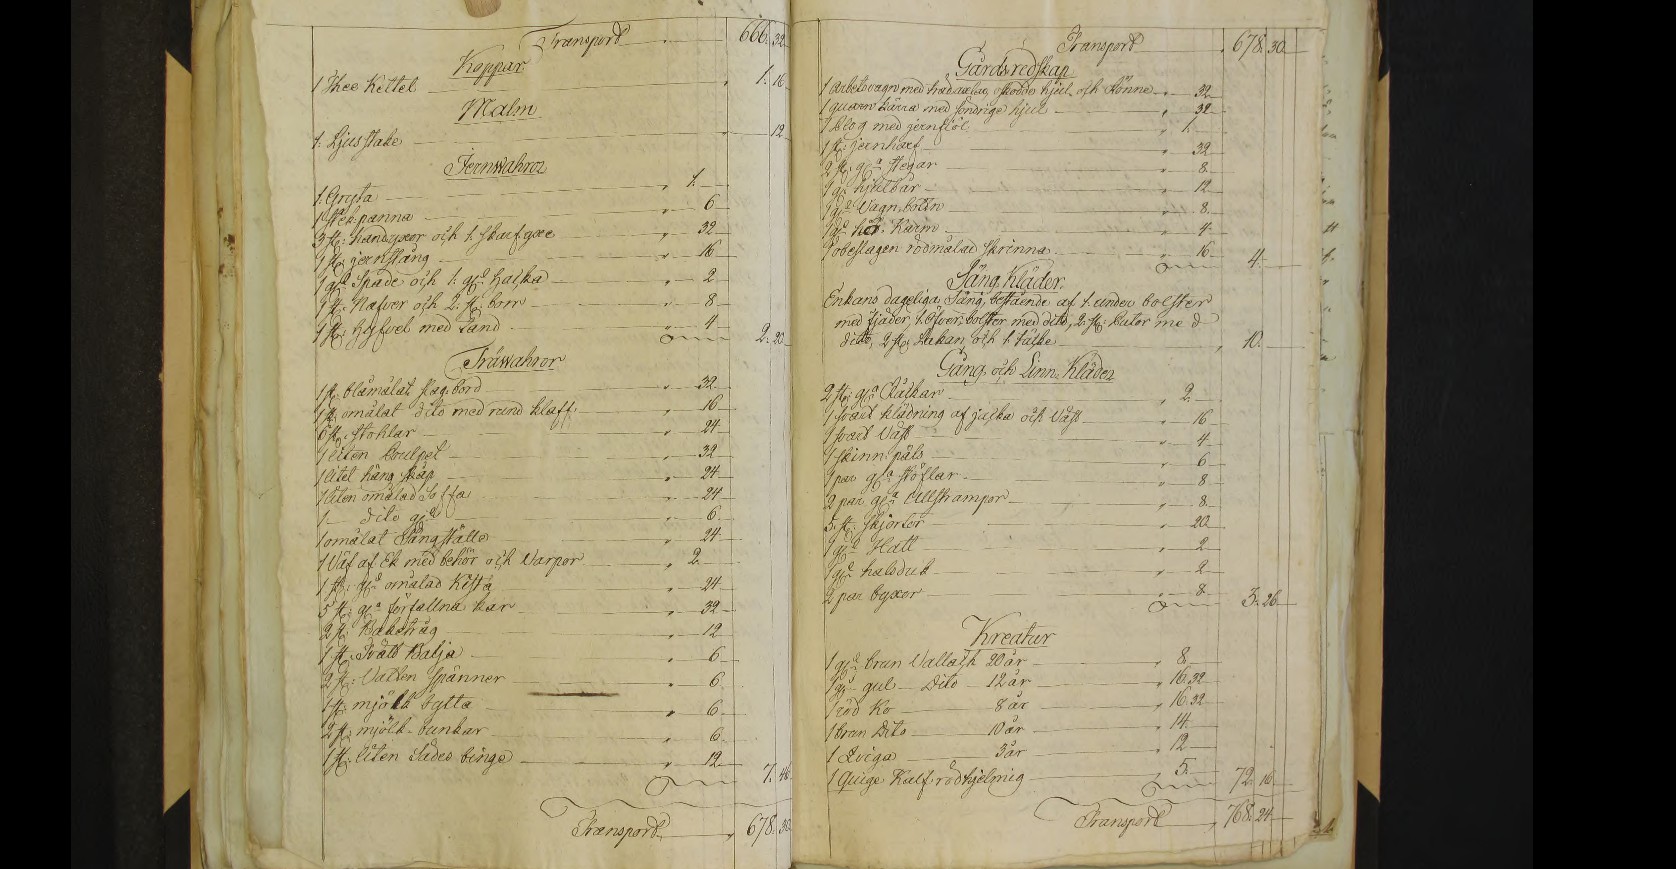 Transport 666. 32
Koppar
1 Thee Kettel 1. 16
Malm
1. Ljusstake 12
Jernwahror
1. Gryta 1.
1 stekpanna 6
3 st: handyxor och 1. skarfyxe 32
1 st: jernstång 16
1 gl: Spade och 1. gl: hacka 2
1 st: Nafvar och 2. st: borr 8
1 st: hyfvel med tand 4
2. 20
Träwahror
1 st: blåmålat slagbord 32
1 st: omålat dito med rund klaff: 16
6 st: stohlar 24
1 liten Poulpet 32
1 litet häng skåp 24
1 liten omålad Soffa 24
1 dito gl: 6
1 omålat Sängställe 24
1 Väf af Ek med behör och Varpor 2.
1 st: gl: omålad Kista 24
5 st: gl: förfallna kar 32
2 st: Baktråg 12
1 st: Tvätt Balja 6
2 st: Vatten Spänner 6
1 st: mjölk bytta 6
2 st: mjölk-bunkar 6
1 st: liten Sädes binge 12
7. 46
Transport 678. 30
Transport 678. 30
Gårdsredskap
1 Arbetsvagn med trädaxlar, skodde hjul och Rönne 32
1 quarn kärra med söndrige hjul 32
1 Plog med jernbiol 1.
1 st: jernharf 32
2 st: gl: stegar 8
1 gl: hjulbår 12
1 gl: Vagn, botten 8
1 gl: hö, Karm 4
1 obeslagen rödmålad Skrinna 16
4.
Säng, Kläder
Enkans dageliga Säng, bestående af 1. under bolster
med fjäder, 1. öfver, bolster med dito, 2. st: kutor med
dito, 2 st: Lakan, och 1. täcke 10.
Gång, och Linn, Kläder
2 st: gl: Råckar 2.
1 svart klädning af jacka och Väst 16
1 svart Väst 4
1 skinn päls 6
1 par gl: stöflar 8
2 par gl: Ullstrumpor 8
5. st: skjortor 20
1 gl: Hatt 2
1 gl: halsduk 2
2 par byxor 8
3. 26
Kreatur
1 gl: brun Vallack 20 år 8.
1 gl: gul Dito 12 år 16. 32
1 röd Ko 8 år 16 32
1 brun Dito 10 år 14.
1 Qviga 3 år 12
1 Quige Kalf rödhjelmig 5.
72. 16
Transport 768. 24